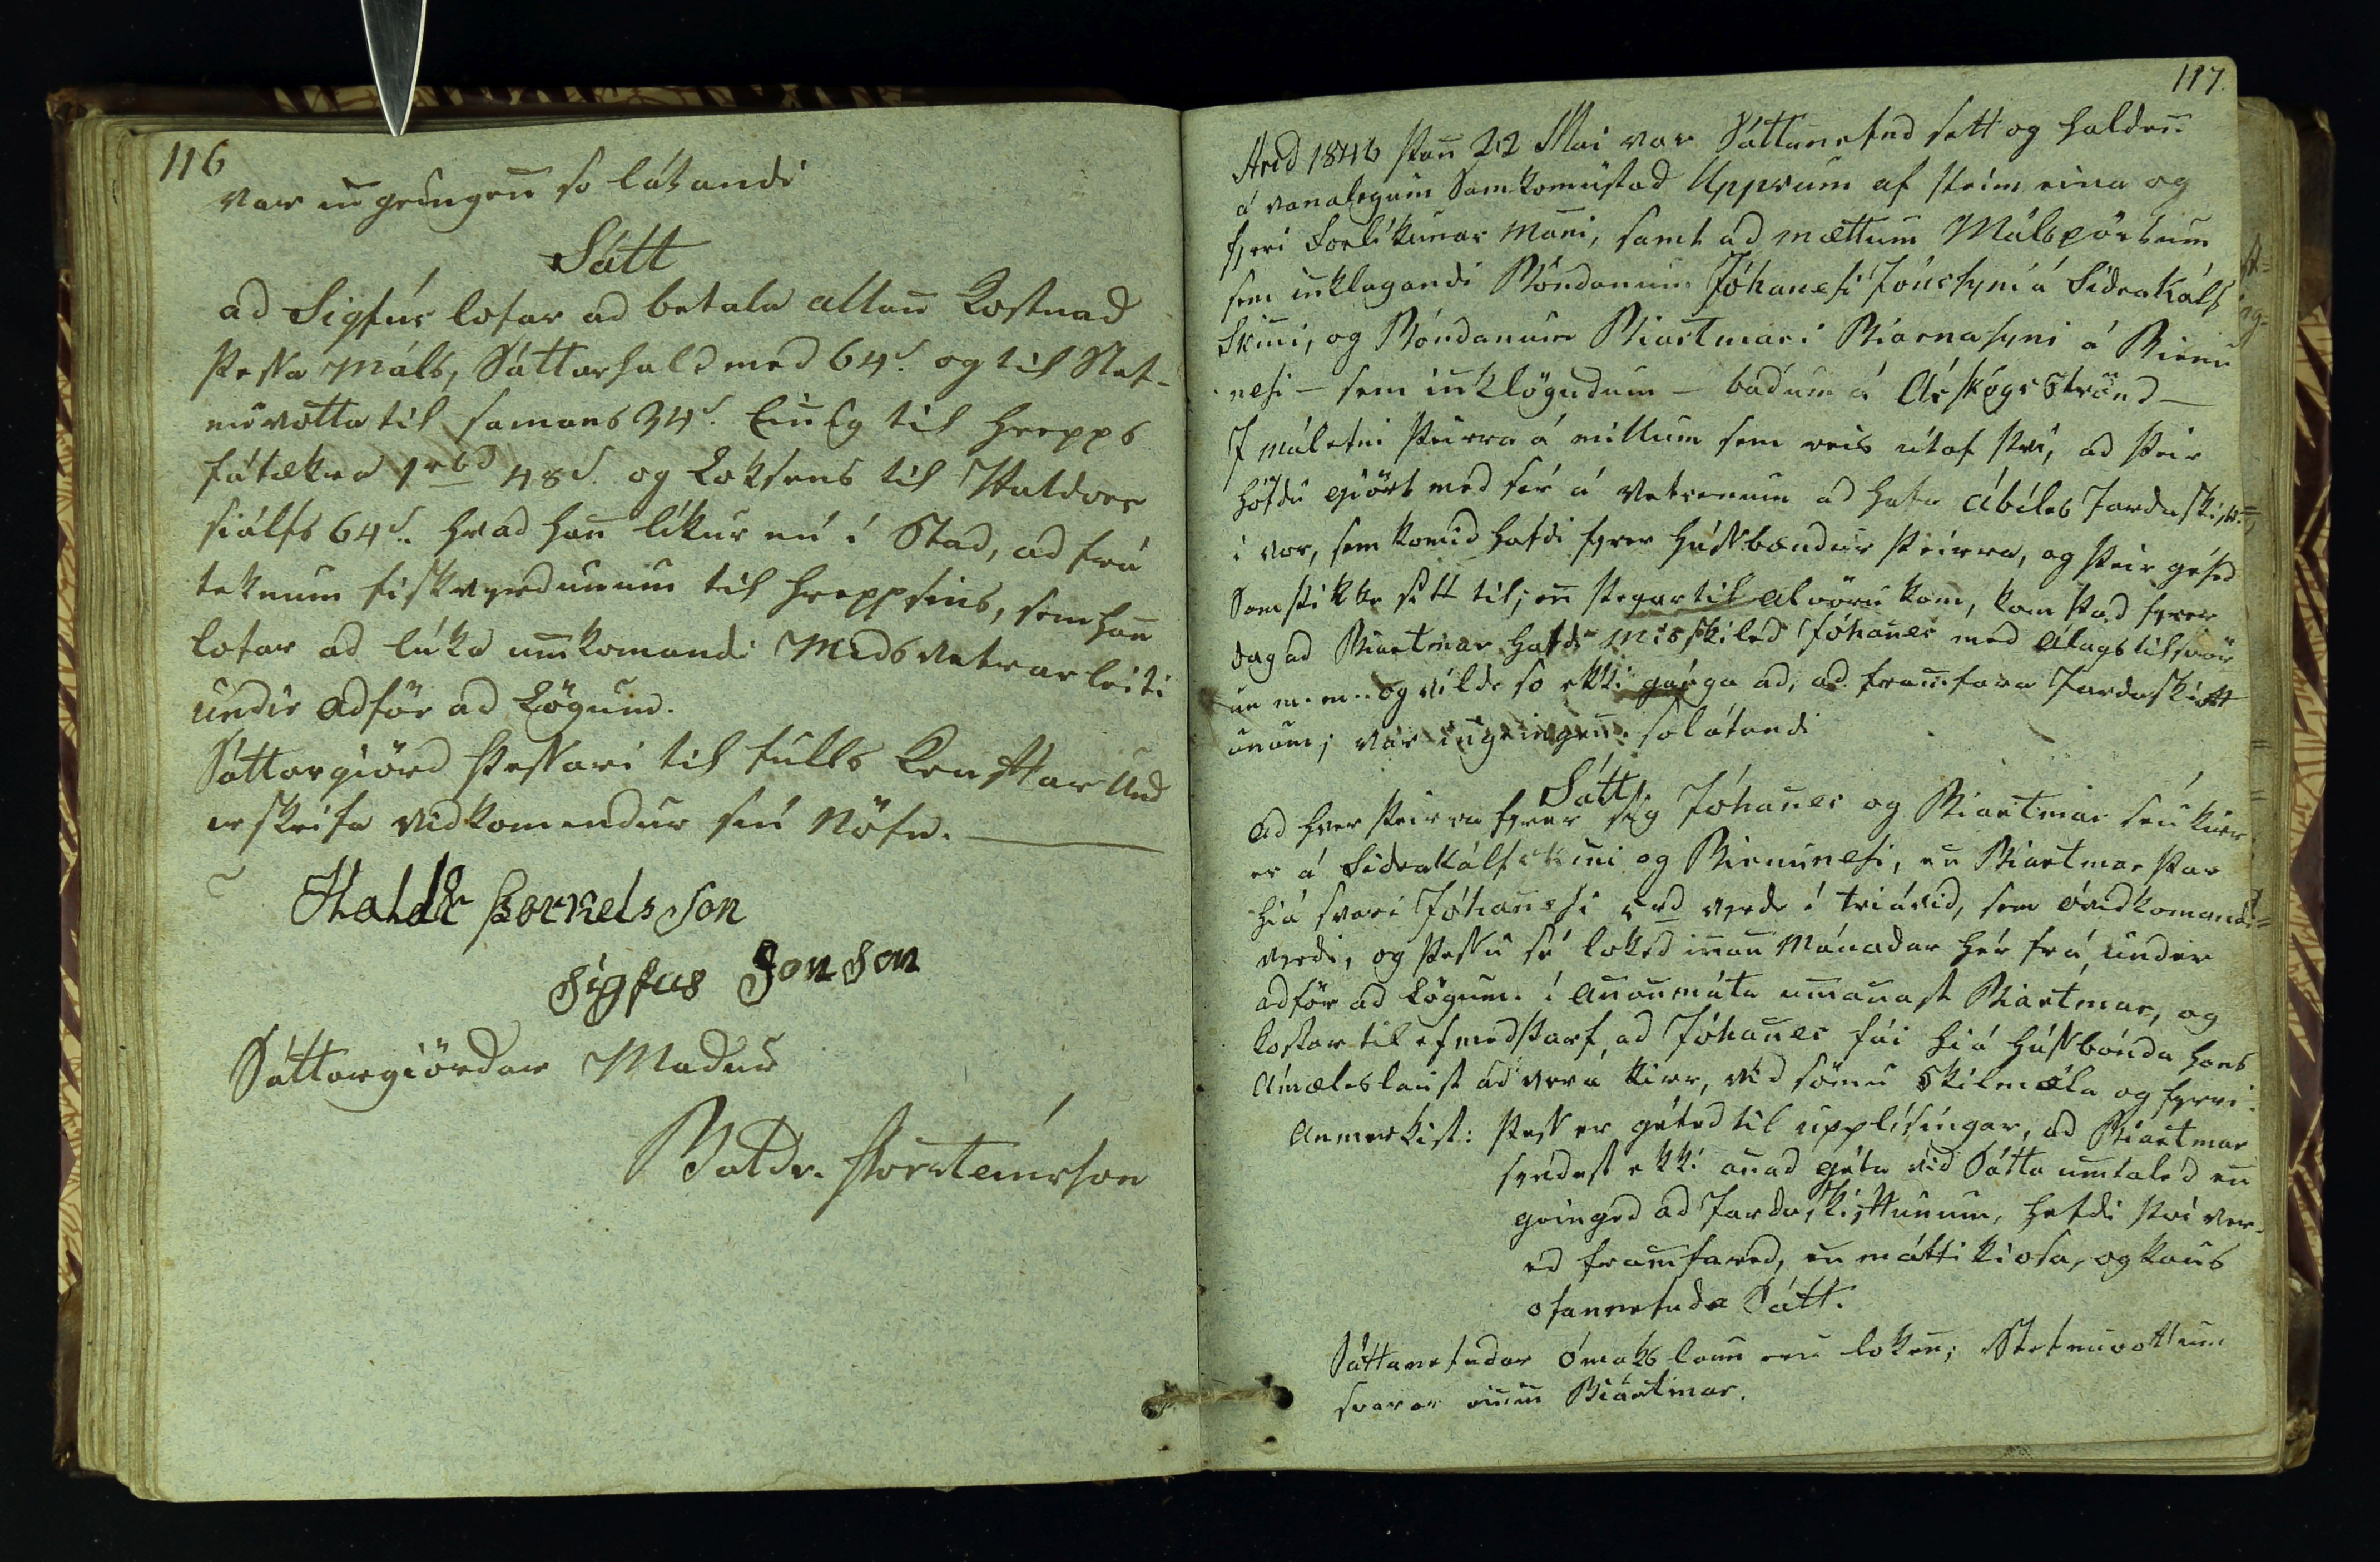 116
var in geingen̄ so látandi
Sátt
ad Sigfús lofar ad betala allan̄ Kostnad
þessa Máls, Sáttarhald med 64s. og til Stef-
nuvotta til samans 34s. til hrepps
fátækra 1rbd 48s. og Loksens til Haldors
siálfs 64s. hvad han̄ líkur nú í Stad, ad frá
teknum fiskvyrdunum til hreppsins, sem han̄
lofar ad lúka um̄komandi Midsvetrar leiti
undir Adför ad Lögum.
Sáttargiörd þessari til fulls Krafttar Und
erskrifa vidkomendur sín Nöfn.
Haldór Þorkelsson
Sigfus Jonson
Sáttargiördar Madur
Baldv. Þorsteinsson
117
Arid 1846 þan̄ 22 Mai var Sáttanefnd sett og halden̄
á vanalegum Samkomustad Uppsum af þeim eina og
fyrri Forlíkunar Man̄i, samt ad mættum Málspörtum
sem in̄klagandi Bóndanum Jóhan̄esi Jónssyni á Sidrakálf
Skin̄i, og Bóndanum Biartmari Biarnasyni á Birnu
nesi – sem in̄klögudum – badum á Árskógs Strönd –
Í máletni þeirra á millum sem reis útaf því, ad þeir
höfdu giört med sér á vetrenum ad hafa Ábílis Jardaskipti
í vor, sem komid hafdi fyrer húsbændur þeirra, og þeir géfed
Samþikke sitt til; en̄ þegar til alvöru kom, kom þad fyrer
dag ad Biartmar hafdi misskiled Jóhan̄es med Álags tilsvör
un m. m. og vilde so ekki gánga ad, ad fram̄fara Jardaskipt
unum; var in̄geingen̄ so látandi
Sátt
Ad hver þeirra fyrer sig Jóhan̄es og Biartmar séu kirr
er á Sidrakálfskin̄i og Birnunesi, en̄ Biartmar þar
hiá svari Jóhan̄esi 5rd virde í triávid, sem óvidkomandi
virdi, og þessu sé loked in̄an Mánadar hér frá, under
adför ad Lögum. í An̄an̄máta um̄anast Biartmar, og
kostar til ef med þarf, ad Jóhan̄es fái hiá húsbónda hans
Ámælislaust ad vera kirr, vid sömu Skilmála og fyrri.
Anmerkist: þess er géted til upplísíngar, ad Biartmar
syndest ekki an̄ad géta vid Sátta um̄taled en̄
geinged ad Jardaskiptunum, hefdi því ver-
id fram̄fared, en mátti kiósa, og kaus
ofannefnda Sátt.
Sáttanefndar ómaks laun eru loken; Stefnuvottum
svarar einn Biartmar.